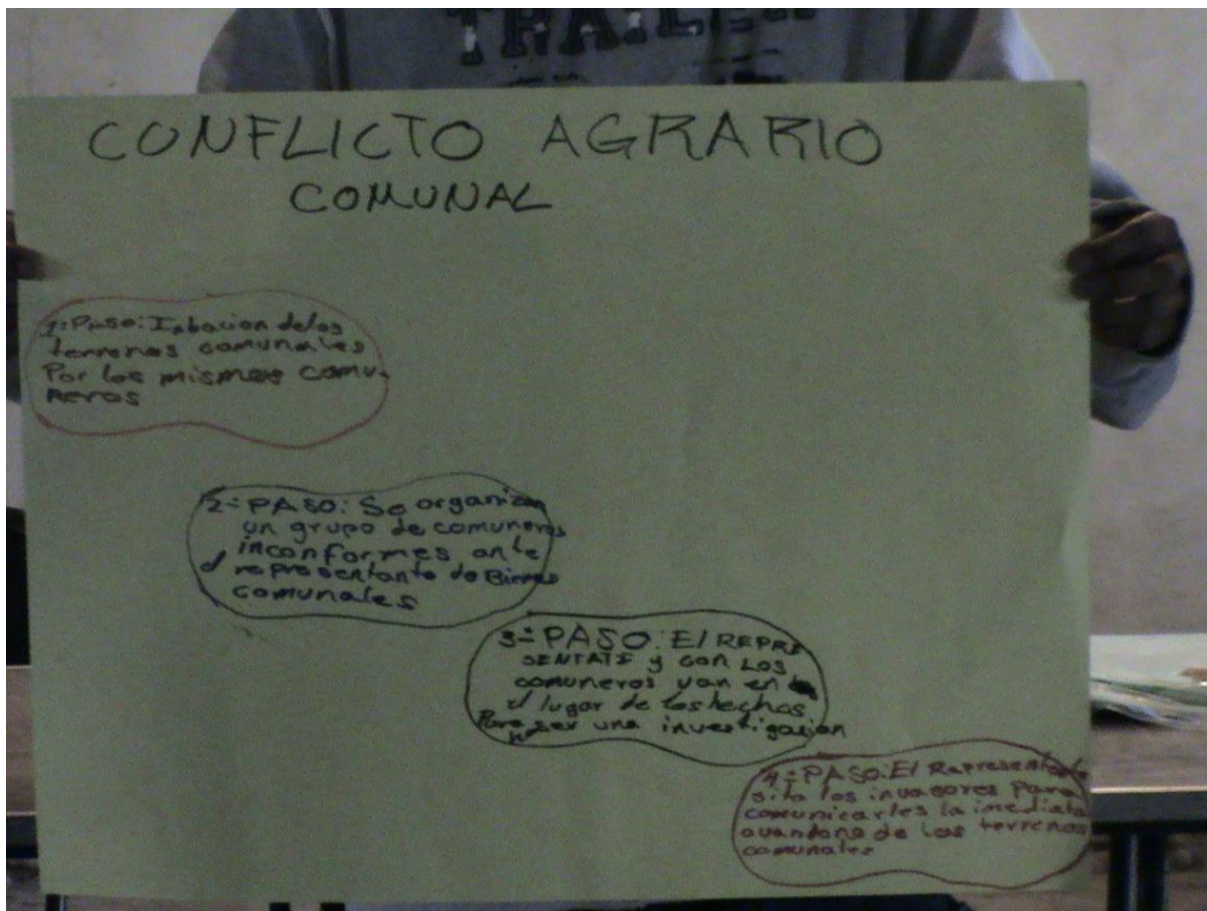 TRAILE
CONFLICTO AGRARIO
COMUNAL
1= PASO: Inbacion de los
terrenos comunales
Por los mismos comu-
neros
2= PASO: Se organizan
un grupo de comuneros
inconformes ante
el representante de Bienes
comunales
3= PASO: El REPRE
SENTATE y con Los
comuneros van en
el lugar de los hechos
Para haser una investigacion
4= PASO: El Representante
sita los invasores para
comunicarles la inmediata
avandono de los terrenos
comunales